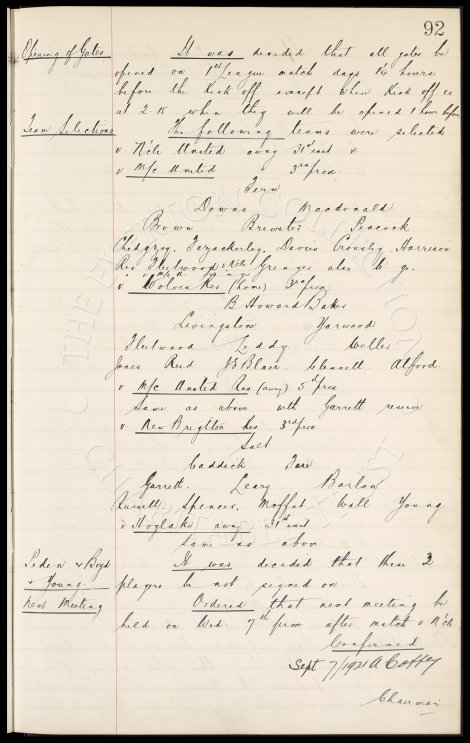 92
Opening of Gates It was decided that all gates be
opened on 1st League match days 1½ hours
before the Kick off except when Kick off is
at 2.15 when they will be opened 1 hour before
Team Selections The following teams were selected
v N'cle United away 31st inst &
v M/c United " 3rd prox.
Fern
Downs Macdonald
Brown Brewster Peacock
Chedgzoy, Fazackerley, Davies Crossley, Harrison
Res Fleetwood v N'cle Grenyer also to go.
v Wolves Res (home) 3rd prox
B Howard Baker
Livingston Yarwood
Fleetwood Leddy Weller
Jones Reid J Blair. Clennell. Alford.
v M/c United Res (away) 5th prox
Same as above with Garrett reserve
v New Brighton Res 3rd prox
Salt
Caddick Tare
Garrett. Leary Barlow
Spencer, Moffat Wall Young.
v Hoylake away 31st inst
Same as above
Peden & Boyd It was decided that these 3
& Young. players be not signed on
Next Meeting Ordered that next meeting be
held on Wed. 7th prox after match v N'cle
Confirmed
Sept 7/1921 A Coffey
Chairman
THE EVERTON COLLECTION
CHARITABLE TRUST